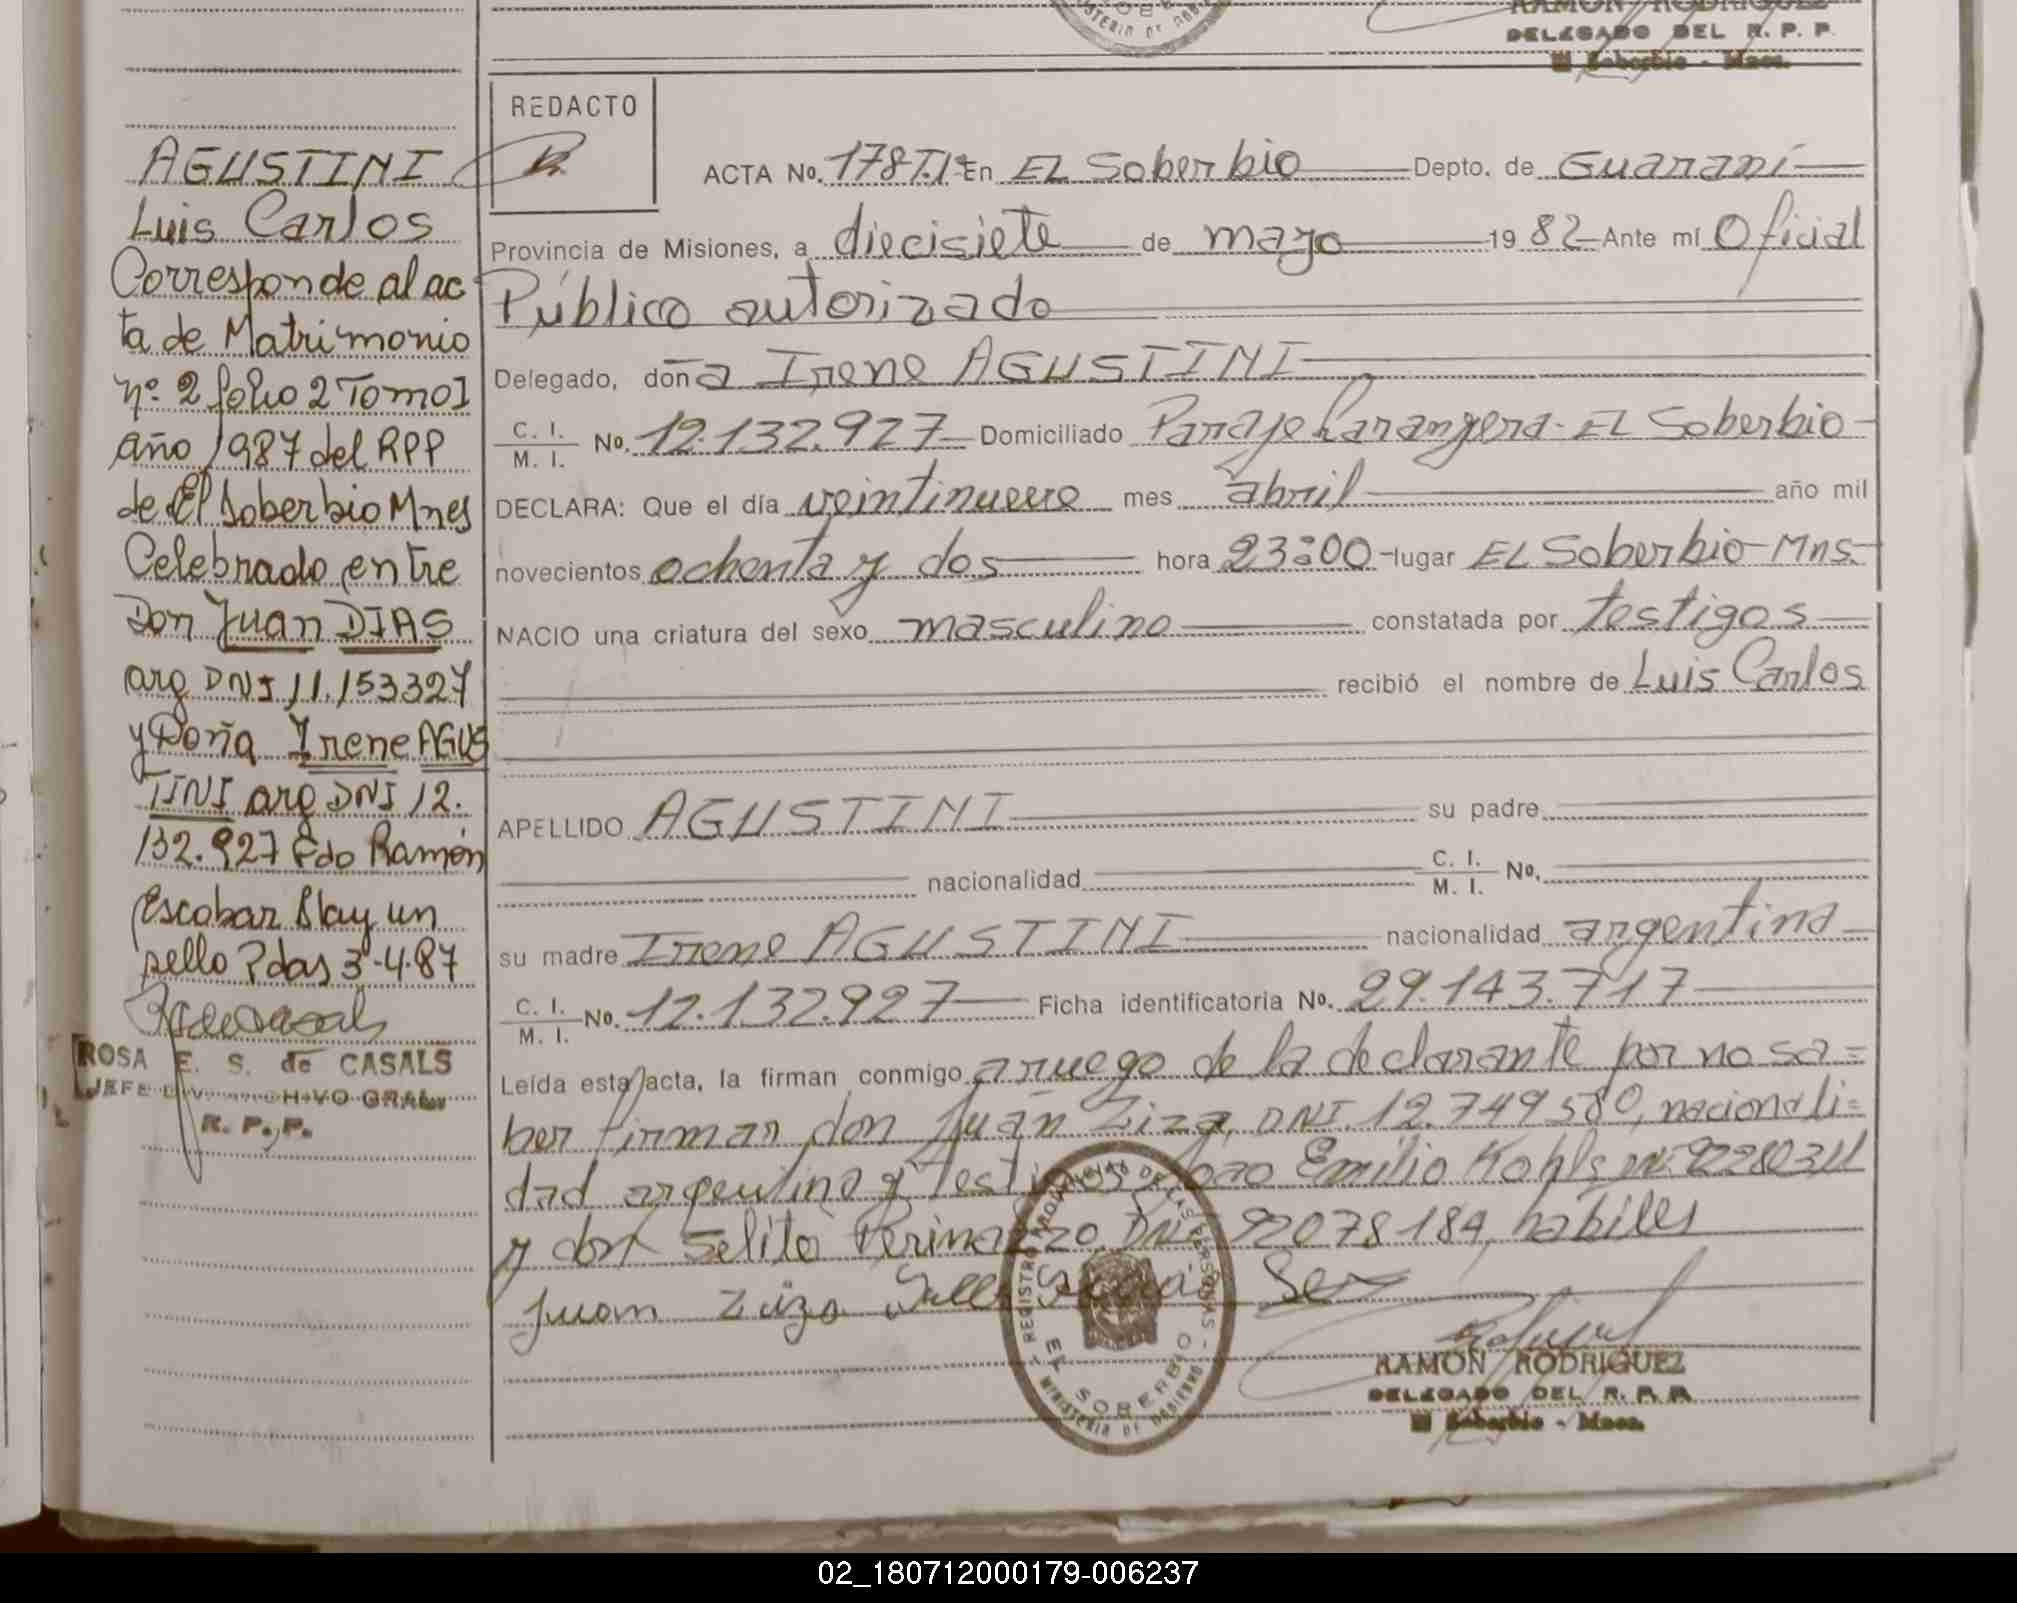 RAMON RODRIGUEZ
DELEGADO DEL R. P. P.
El Soberbio - Mnes.
REDACTO
AGUSTINI
Luis Carlos
Corresponde al ac
ta de Matrimonio
nº 2 folio 2 Tomo I
año 1987 del RPP
de El Soberbio Mnes
Celebrado entre
Don Juan DIAS
arg DNI 11.153327
y Doña Irene AGUS
TINI arg DNI 12.
132.927 Fdo Ramón
Escobar Blay un
sello Pdas 3-4-87
ROSA E. S. de CASALS
JEFE DIV. ARCHIVO GRAL.
R. P. P.
ACTA No. 178 T.I En EL Soberbio Depto. de Guaraní
Provincia de Misiones, a diecisiete de mayo 1982 Ante mí Oficial
Público autorizado
Delegado, doña Irene AGUSTINI
C. I. M. I. No. 12.132.927 Domiciliado Paraje Larangera - EL Soberbio
DECLARA: Que el día veintinueve mes abril año mil
novecientos ochenta y dos hora 23:00 - lugar EL Soberbio - Mns.
NACIO una criatura del sexo masculino constatada por testigos
recibió el nombre de Luis Carlos
APELLIDO AGUSTINI su padre
nacionalidad C. I. M. I. No.
su madre Irene AGUSTINI nacionalidad argentina
C. I. M. I. No. 12.132.927 Ficha identificatoria No. 29.143.717
Leída esta acta, la firman conmigo a ruego de la declarante por no sa=
ber firmar don Juan Ziza, DNI. 12.749580, nacionali=
dad argentino y testigos Joao Emilio Kohls
y don Selito DNI 92078184, habiles
Juan Ziza
REGISTRO PROVINCIAL DE LAS PERSONAS
EL SOBERBIO
MINISTERIO DE GOBIERNO
RAMON RODRIGUEZ
DELEGADO DEL R. P. P.
El Soberbio - Mnes.
02_180712000179-006237